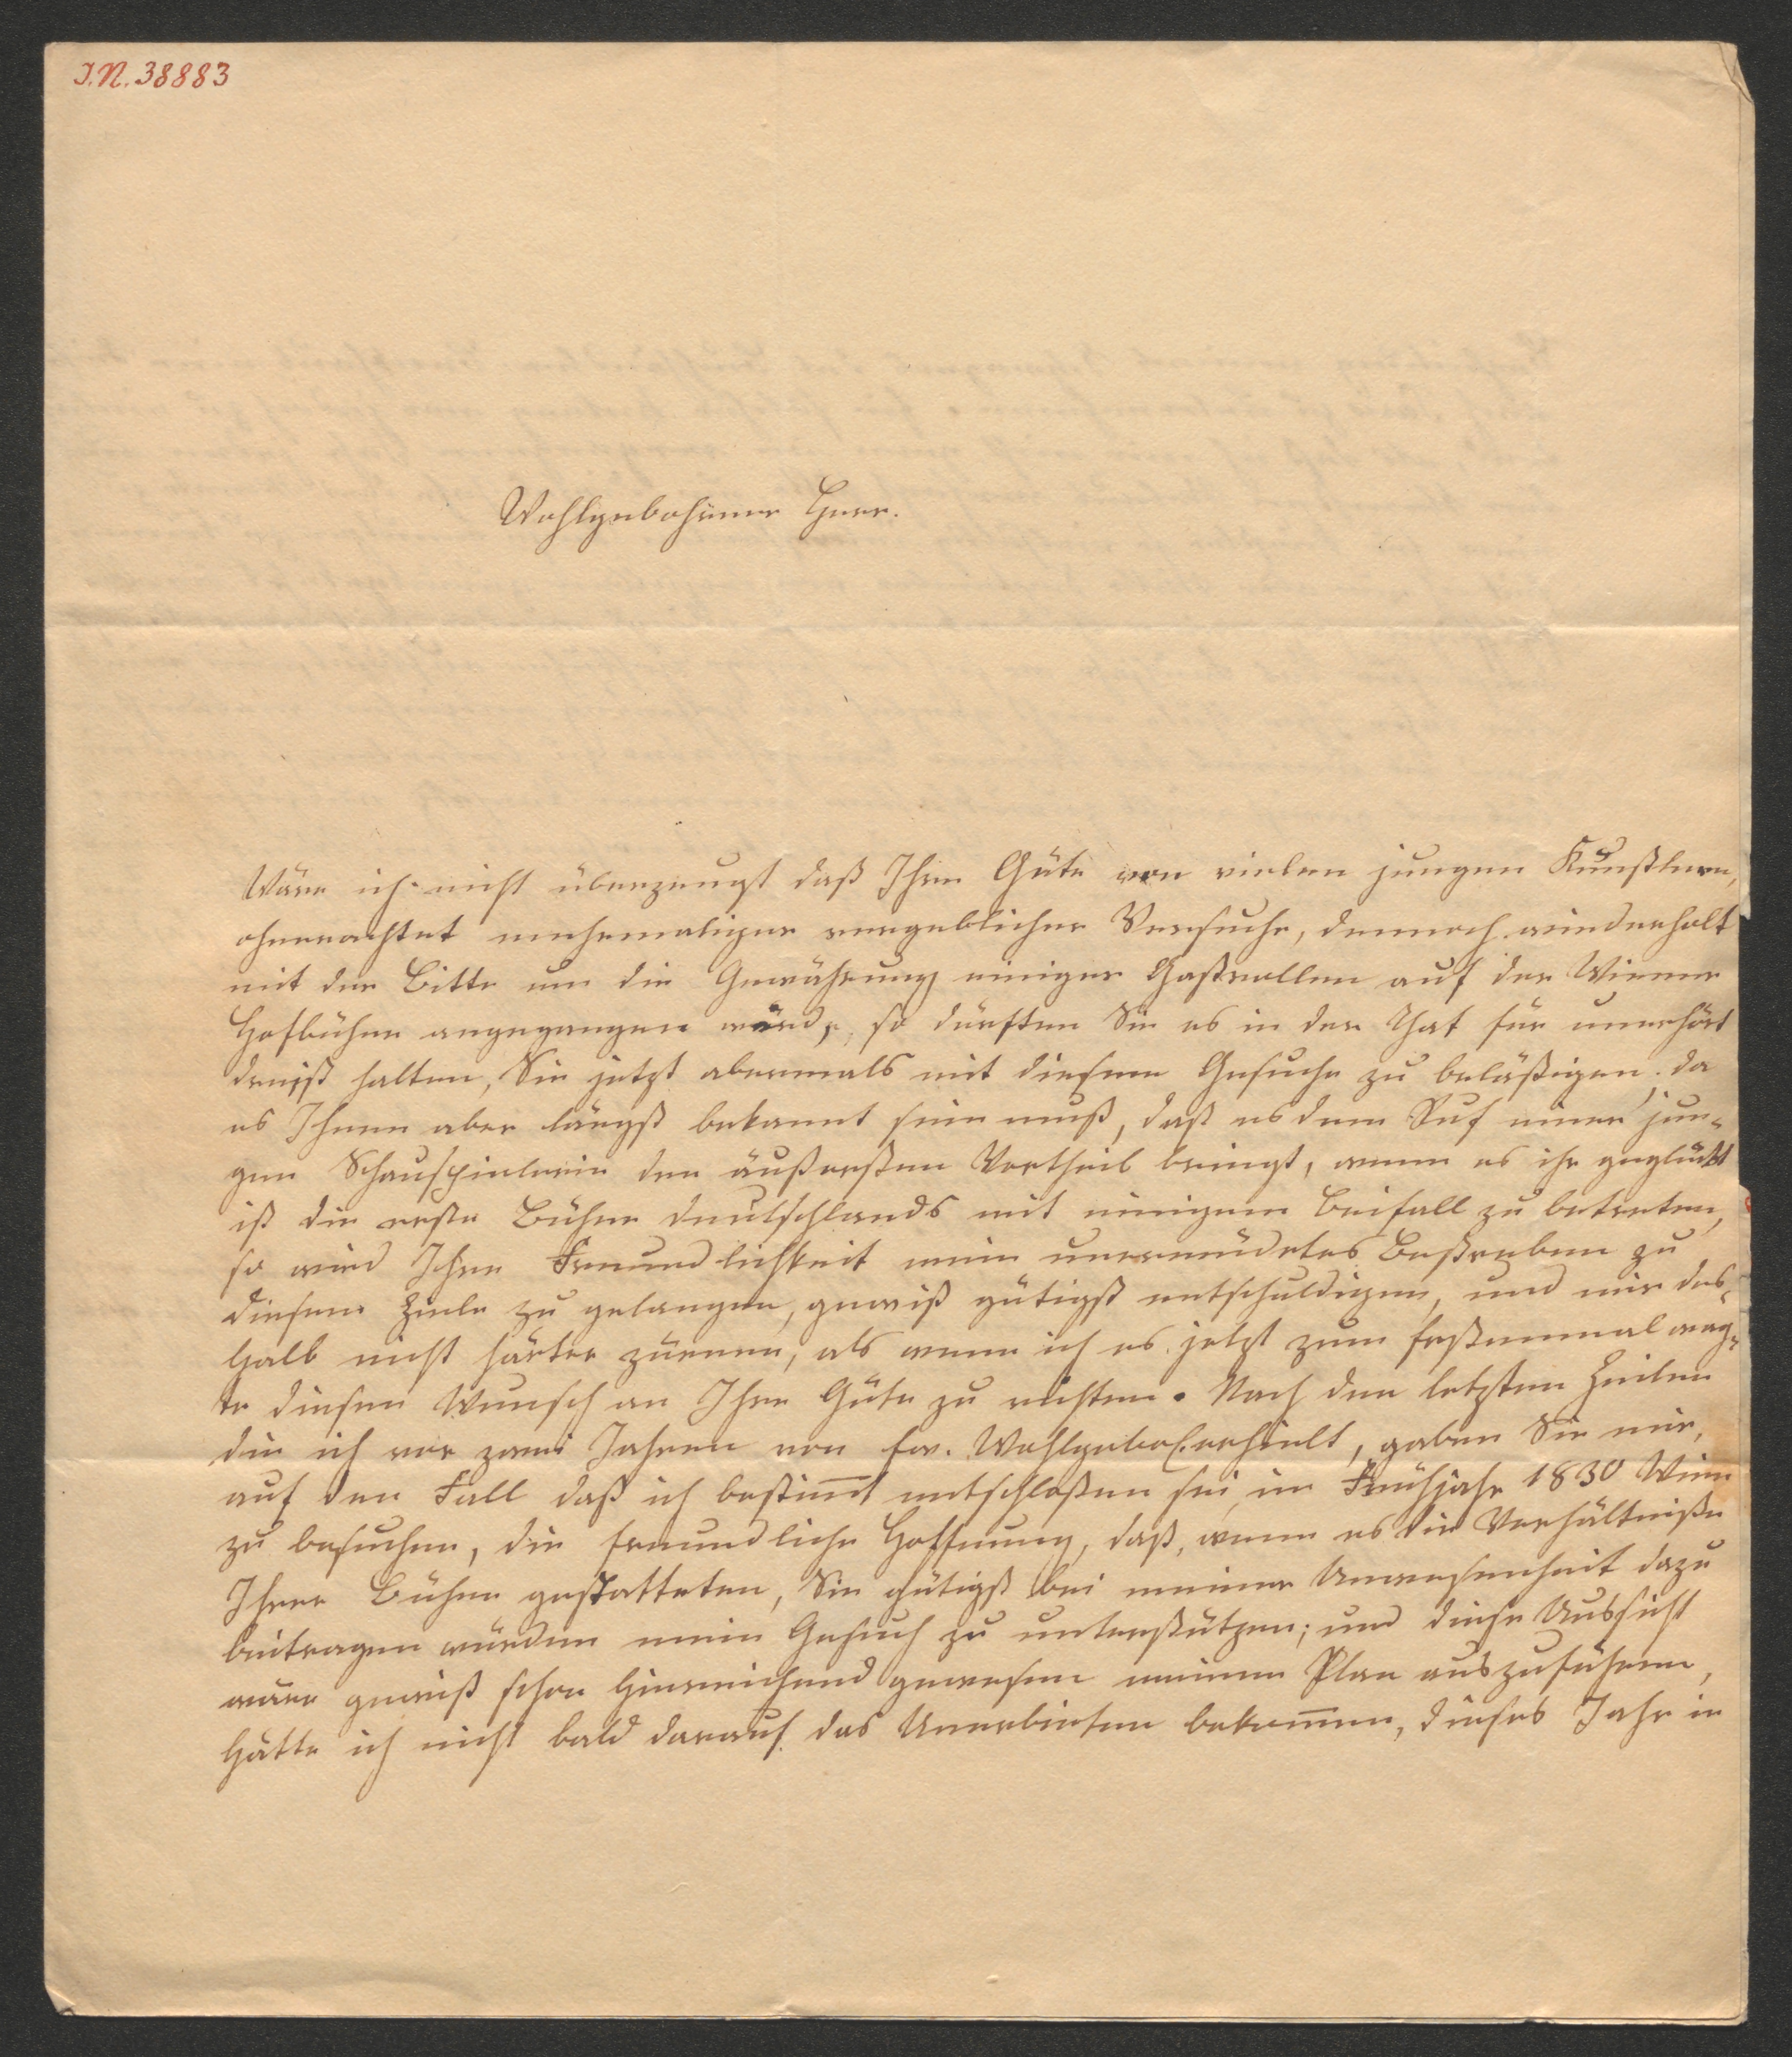 J.N. 38883
Wohlgebohrner Herr.
Wäre ich nicht überzeugt daß Ihre Güte von vielen jungen Künstlern,
ohnerachtet mehrmaliger vergeblicher Versuche, dennoch wiederholt
mit der Bitte um die Gewährung einiger Gastrollen auf der Wiener
Hofbühne angegangen würde, so dürften Sie es in der That für unerhört
dreist halten, Sie jetzt abermals mit diesem Gesuche zu beläßtigen. Da
es Ihnen aber längst bekannt sein muß, daß es dem Ruf einer jun-
gen Schauspielerin den äußersten Vortheil bringt, wenn es ihr geglückt
ist die erste Bühne Deutschlands mit einigem Beifall zu betreten,
so wird Ihre Freundlichkeit mein unermüdetes Bestreben zu
diesem Ziele zu gelangen, gewiß gütigst entschuldigen, und mir des-
halb nicht härter zürnen, als wenn ich es jetzt zum erstenmal wag-
te diesen Wunsch an Ihre Güte zu richten. Nach den letzten Zeilen
die ich vor zwei Jahren von Ew. Wohlgeboh. erhielt, gaben Sie mir,
auf den Fall daß ich bestimt entschloßen sei, im Frühjahr 1830 Wien
zu besuchen, die freundliche Hoffnung, daß, wenn es die Verhältniße
Ihrer Bühne gestatteten, Sie gütigst bei meiner Anwesenheit dazu
beitragen würden mein Gesuch zu unterstützen; und diese Aussicht
wäre gewiß schon hinreichend gewesen meinen Plan auszuführen,
hätte ich nicht bald darauf das Anerbieten bekomen, dieses Jahr in